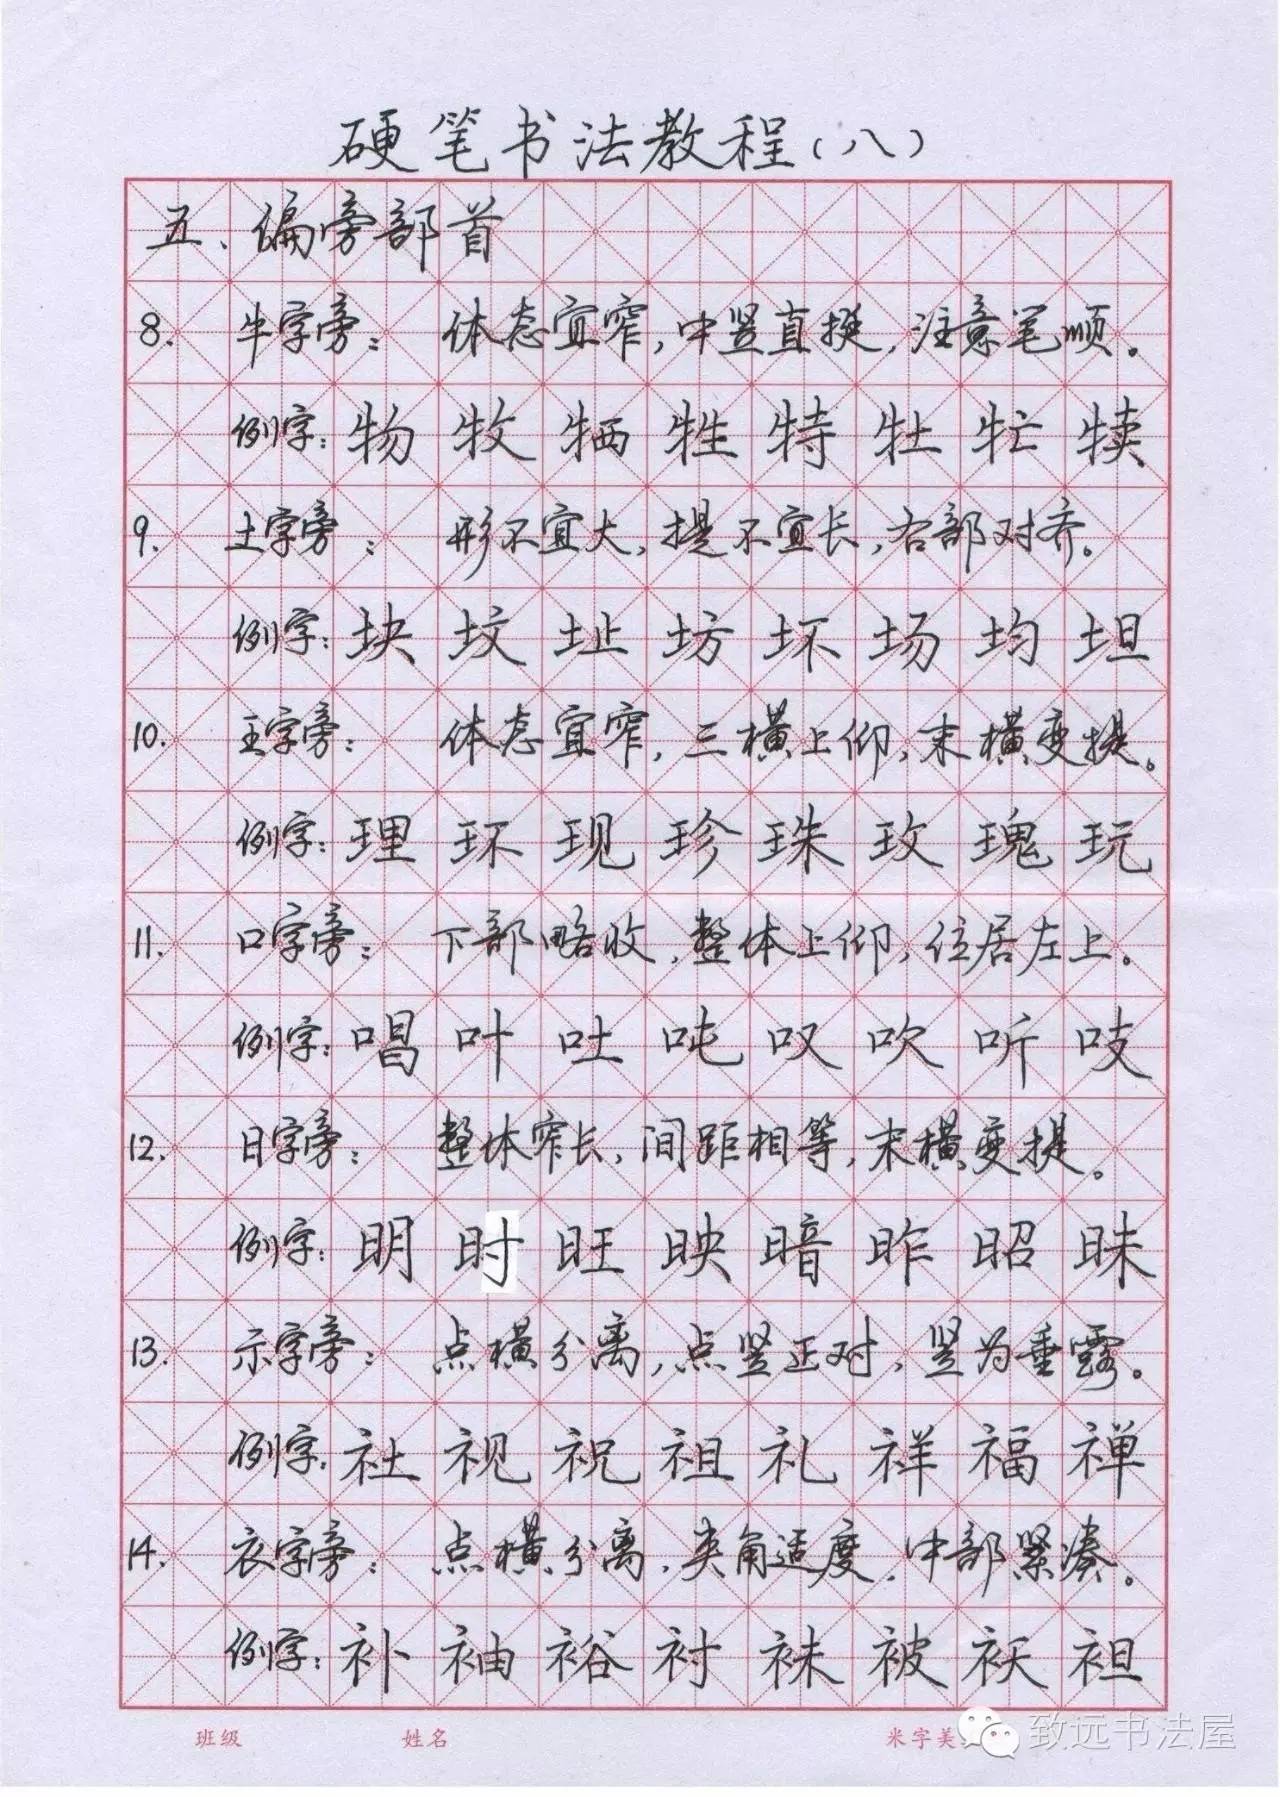 硬笔书法教程(八)
五、偏旁部首
8. 牛字旁: 体态宜窄,中竖直挺,注意笔顺。
例字:物 牧 牺 牲 特 牡 牤 犊
9. 土字旁: 形不宜大,提不宜长,右部对齐。
例字:块 坟 址 坊 坏 场 均 坦
10. 王字旁: 体态宜窄,三横上仰,末横变提。
例字:理 环 现 珍 珠 玫 瑰 玩
11. 口字旁: 下部略收,整体上仰,位居左上。
例字:唱 叶 吐 吨 叹 吹 听 吱
12. 日字旁: 整体窄长,间距相等,末横变提。
例字:明 时 旺 映 暗 昨 昭 昧
13. 示字旁: 点横分离,点竖正对,竖为垂露。
例字:社 视 祝 祖 礼 祥 福 禅
14. 衣字旁: 点横分离,夹角适度,中部紧凑。
例字:补 袖 裕 衬 袜 被 袄 袒
班级 姓名 米字美
致远书法屋